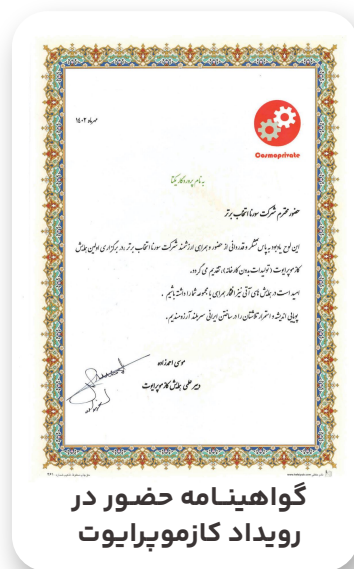 مهرماه ۱۴۰۲
Cosmoprivate
به نام پروردگار یکتا
حضور محترم شرکت سورنا انتخاب برتر
این لوح یادبود به پاس تشکر و قدردانی از حضور و همراهی ارزشمند شرکت سورنا انتخاب برتر در برگزاری اولین همایش
کازموپرایوت (تولیدات بدون کارخانه)، تقدیم می گردد.
امید است در همایش های آتی نیز افتخار همراهی با مجموعه شما را داشته باشیم .
پویایی اندیشه و استمرار تلاشتان را در ساختن ایرانی سربلند آرزومندیم.
موسی احمدزاده
دبیر علمی همایش کازموپرایوت
گواهینـامه حضـور در
رویداد کازموپرایوت